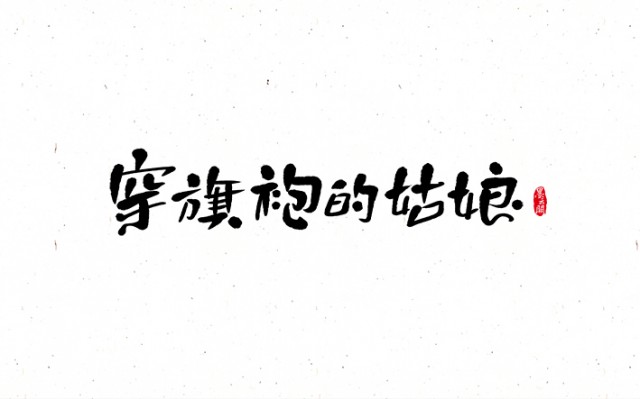 穿旗袍的姑娘